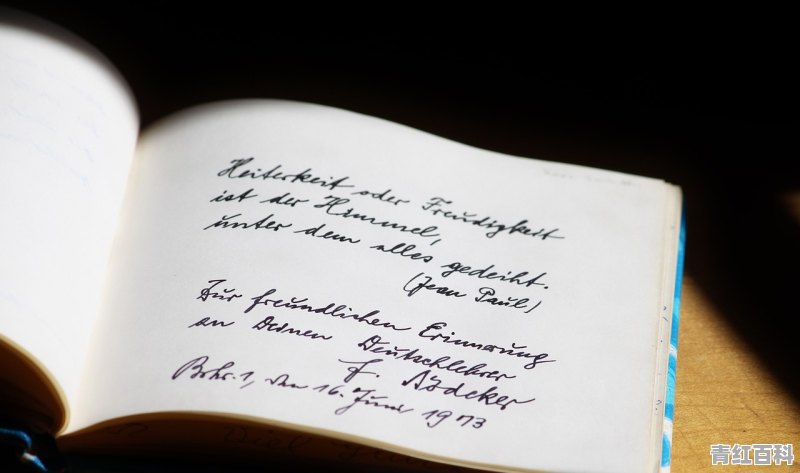 Heiterkeit oder Freudigkeit
ist der Himmel,
unter dem alles gedeiht.
(Jean Paul)
Zur freundlichen Erinnerung
an Deinen Deutschlehrer
F. Bödeker
den 16. Juni 1973
青红百科